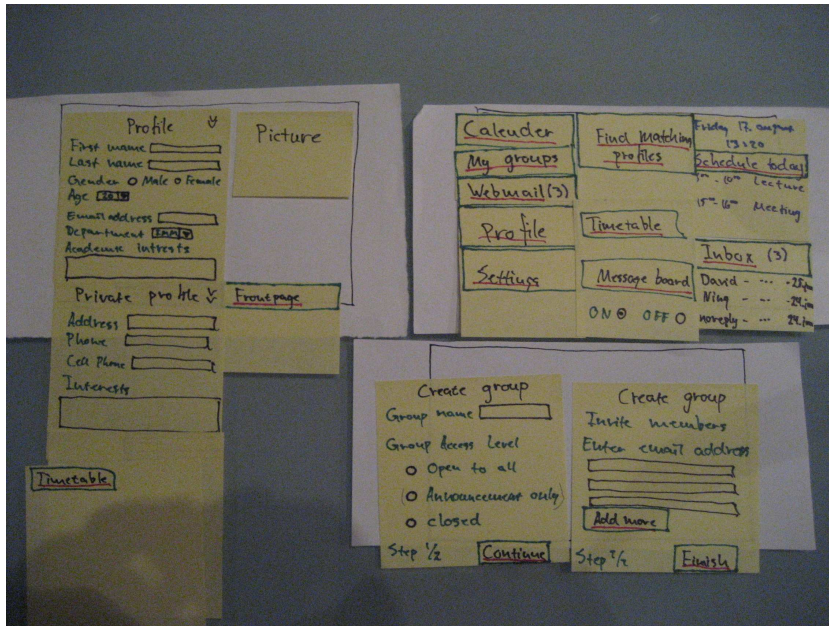 Profile
First name
Last name
Gender Male Female
Age 20
Email address
Department IMM
Academic Intrests
Private profile
Address
Phone
Cell Phone
Interests
Timetable
Picture
Frontpage
Calender
My groups
Webmail (3)
Profile
Settings
Find matching
profiles
Timetable
Message board
ON OFF
Friday 17. august
13:20
Schedule today
Lecture
15⁰⁰-16⁰⁰ Meeting
Inbox (3)
David - ...
Ning - ... -24.jan
noreply - ... 24.jan
Create group
Group name
Group Access Level
Open to all
(Announcement only)
closed
Step 1/2 Continue
Create group
Invite members
Enter email address
Add more
Step 2/2 Finish